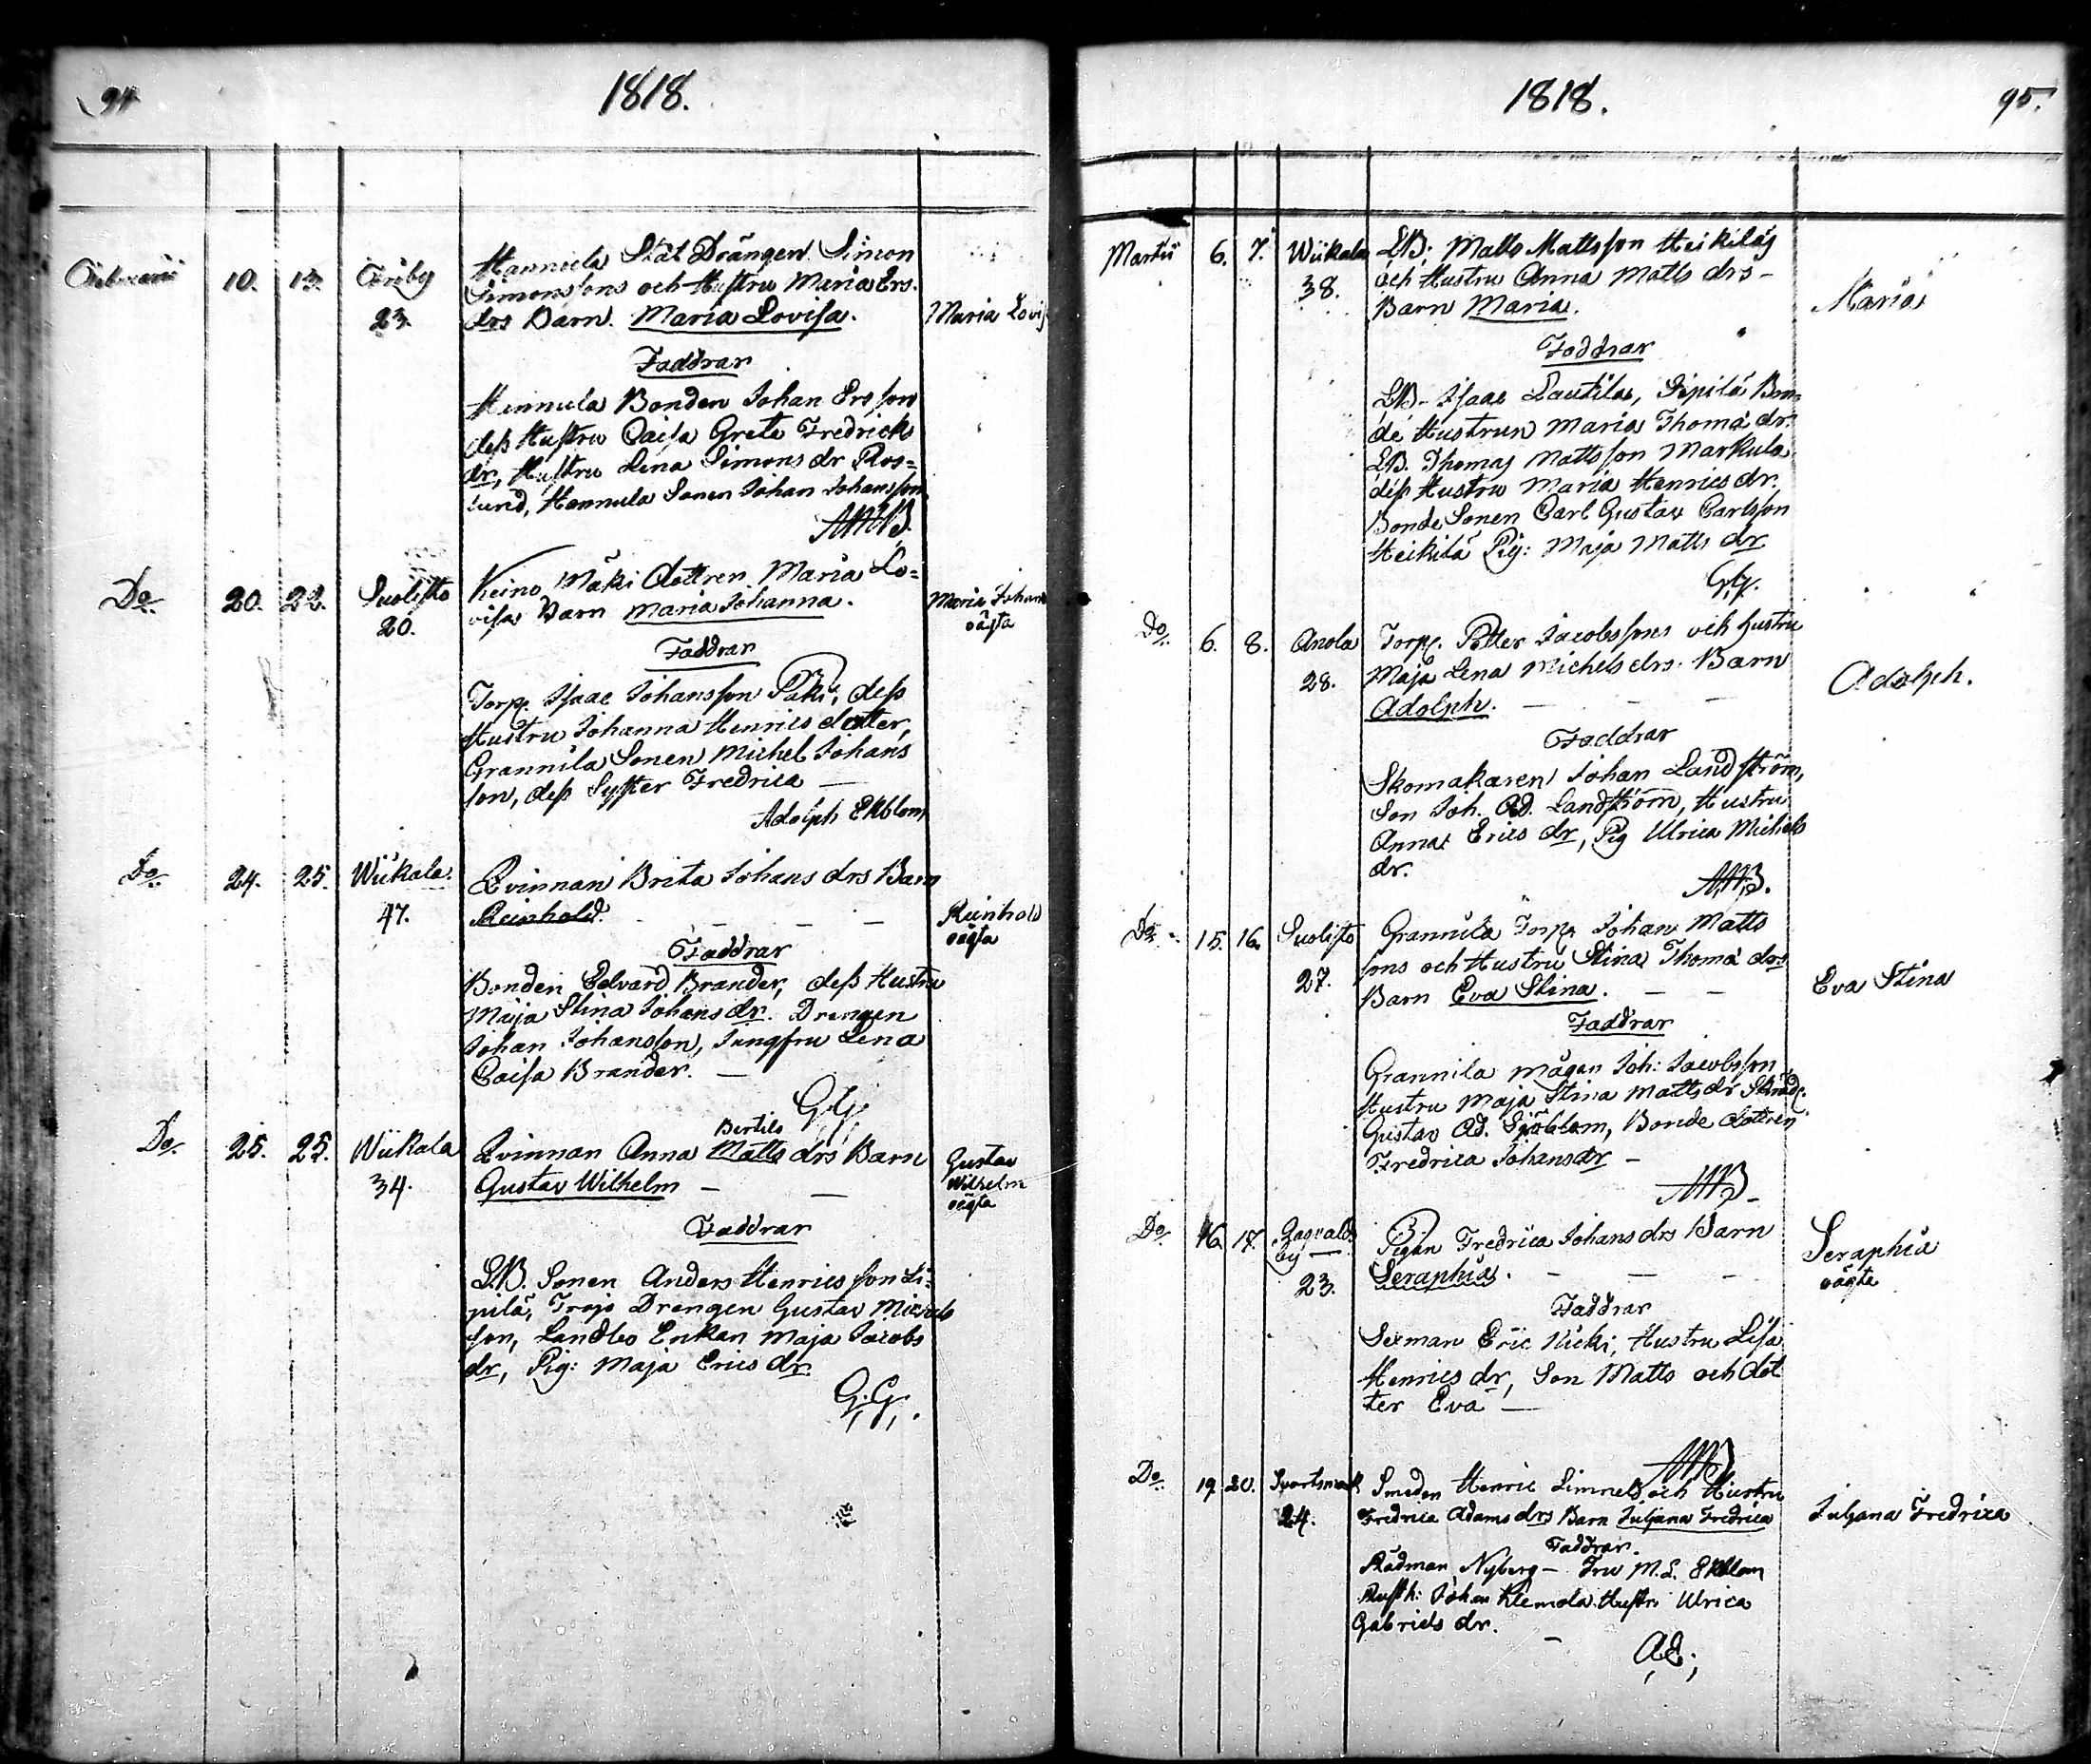 94
1818.
Februarii 10. 13. Friby Hannula Stat Drängen Simon
Simonssons och Hustru Maria Ers-
23. drs Barn. Maria Lovisa. Maria Lovis
Faddrar
Hannula Bonden Johan Ersson
dess Hustru Caisa Greta Fredricks
dr, Hustru Lena Simons dr Ros=
lund, Hannula Sonen Johan Johansson
Do 20. 22. Suolisto Keino Mäki dottren Maria Lo=
20. visas Barn Maria Johanna. Maria Johan
oägta
Faddrar
Torp. Isaac Johansson Paki, dess
Hustru Johanna Henrics dotter,
Grannila Sonen Michel Johans
son, dess Syster Fredrica —
Adolph Ekblom
Do 24. 25. Wiikala. Qvinnan Brita Johans drs Barn
47. Reinhold. — — — Reinhold
oägta
Faddrar
Bonden Edvard Brander, dess Hustru
Maja Stina Johans dr. Drengen
Johan Johansson, Jungfru Lena
Caisa Brander. —
G.G.
Bertils
Do. 25. 25. Wiikala Qvinnan Anna Matts drs Barn Gustav
34. Gustav Wilhelm — — Wilhelm
oägta
Faddrar
LB. Sonen Anders Henricsson Si=
pilä, Trojo Drengen Gustav Michels
son, Landbo Enkan Maja Jacobs
dr, Pig: Maja Erics dr.
G.G.
1818.
95.
Martii 6. 7. Wiikala LB; Matts Mattsson Heikiläs
38. och Hustru Anna Matts drs —
Barn Maria. Maria
Faddrar
LB. Isaac Lautila, Sipilä Bon=
de Hustrun Maria Thomä dr.
LB. Thomas Mattsson Markula
dess Hustru Maria Henrics dr.
Bonde Sonen Carl Gustav Carlsson
Heikilä Pig: Maja Matts dr
G.G.
Do. 6. 8. Anola Torp. Petter Jacobssons och hustru
28. Maja Lena Michels drs. Barn
Adolph. — — — Adolph.
Faddrar
Skomakaren Johan Landström,
Son Joh. Ad. Landström, Hustru
Anna Erics dr, Pig Ulrica Michels
dr.
Do 15. 16. Suolisto Grannila Torp. Johan Matts
27. sons och Hustru Stina Thomä drs
Barn Eva Stina. — — Eva Stina
Faddrar
Grannila Mågen Joh: Jacobsson
Hustru Maja Stina Matts dr
Gustav Ad. Sjöblom, Bonde dottren
Fredrica Johans dr —
Do. 16. 17. Ragvalds Pigan Fredrica Johans drs Barn
by — Seraphia. — — — Seraphia
23. oägta
Faddrar
Sexman Eric Kicki, Hustru Lisa
Henrics dr, Son Matts och dot
ter Eva —
Do. 19. 20. Svartsmark Smeden Henric Limnels och Hustru
24. Fredrica Adams drs Barn Juljana Fredrica Juljana Fredrica
Faddrar.
Rådman Nyberg — Fru M.L. Ekblom
Rusth: Johan Klemola Hustr. Ulrica
Gabriels dr. —
A.E.